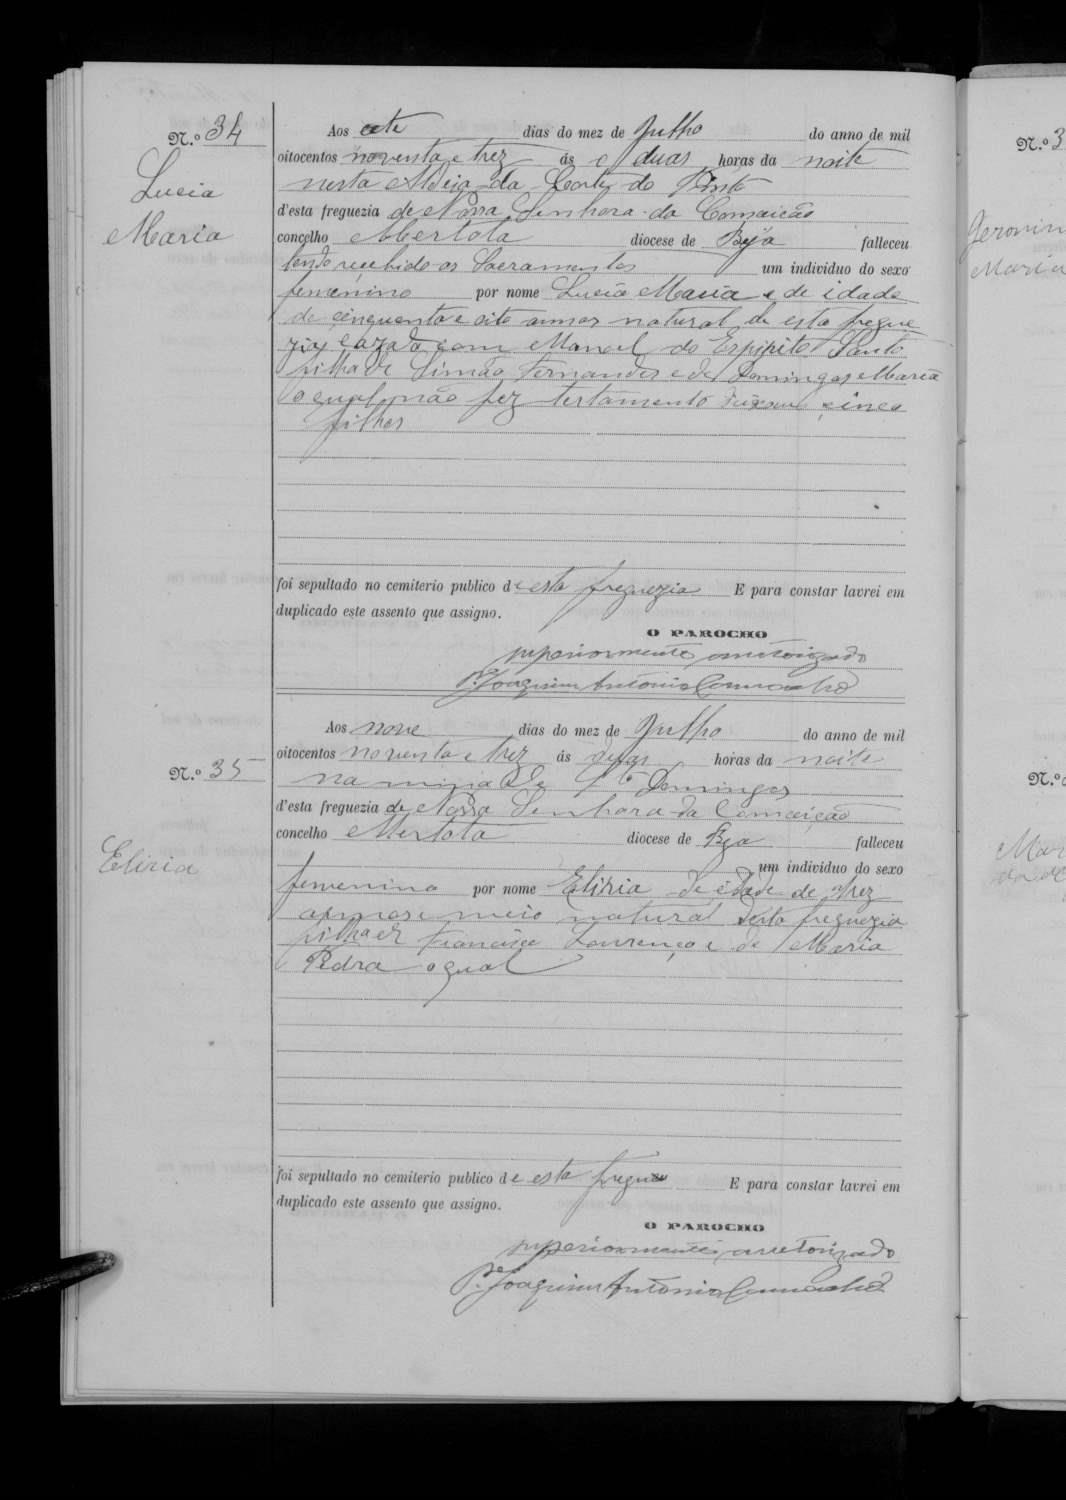 N.º 34
Lucia
Maria
Aos oito dias do mez de Julho do anno de mil
oitocentos noventa e trez ás duas horas da noite
nesta Aldeia da Corte do Pinto
d'esta freguezia de Nossa Senhora da Comceicão
concelho Mertola diocese de Beja falleceu
tendo recebido os Sacramentos um individuo do sexo
femenino por nome Lucia Maria e de idade
de cinquenta e oito annos natural de esta fregue
zia cazada com Manoel do Espirito Santo
filha de Simão Fernandes e de Domingas Maria
o qual não fez testamento deixou cinco
filhos
foi sepultado no cemiterio publico de esta freguezia E para constar lavrei em
duplicado este assento que assigno.
O PAROCHO
superiormente autorizado
P.e Joaquim Antonio
N.º 35
Eliria
Aos nove dias do mez de Julho do anno de mil
oitocentos noventa e trez ás duas horas da noite
na mina de S. Domingos
d'esta freguezia de Nossa Senhora da Comceição
concelho Mertola diocese de Beja falleceu
um individuo do sexo
femenino por nome Eliria de idade de trez
annos e meio natural desta freguezia
filha de Francisco Lourenço e de Maria
Pedra o qual
foi sepultado no cemiterio publico de esta E para constar lavrei em
duplicado este assento que assigno.
O PAROCHO
superiormente autorizado
P.e Joaquim Antonio
N.º 3
Geronim
Maria
N.º
Mar